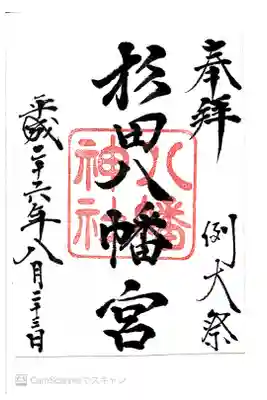 奉拝
例大祭
杉田八幡宮
八幡神社
平成二十六年八月二十三日
CamScannerでスキャン